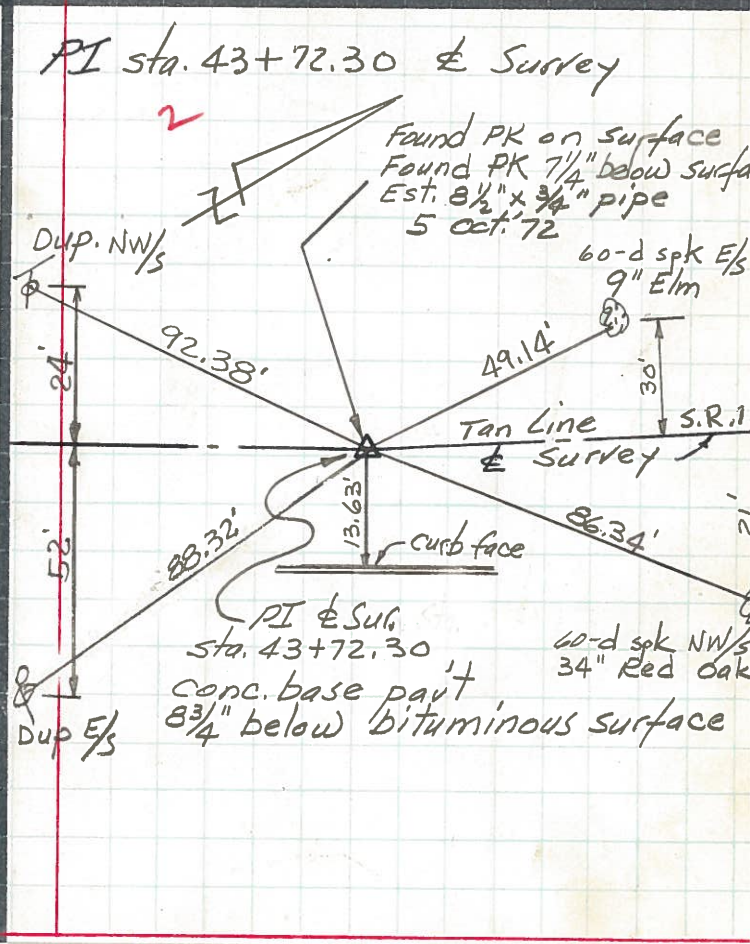 PI sta. 43+72.30 ℄ Survey
2
N
Found PK on surface
Found PK 7 1/4" below surfa
Est. 8 1/2" x 3/4" pipe
5 Oct. '72
Dup. NW/s
60-d spk E/s
9" Elm
92.38'
49.14'
24'
30'
Tan Line
S.R.1
℄ Survey
52'
88.32'
13.63'
86.34'
21'
curb face
PI ℄ Sur.
sta. 43+72.30
60-d spk NW/s
34" Red Oak
conc. base pav't
8 3/4" below bituminous surface
Dup E/s